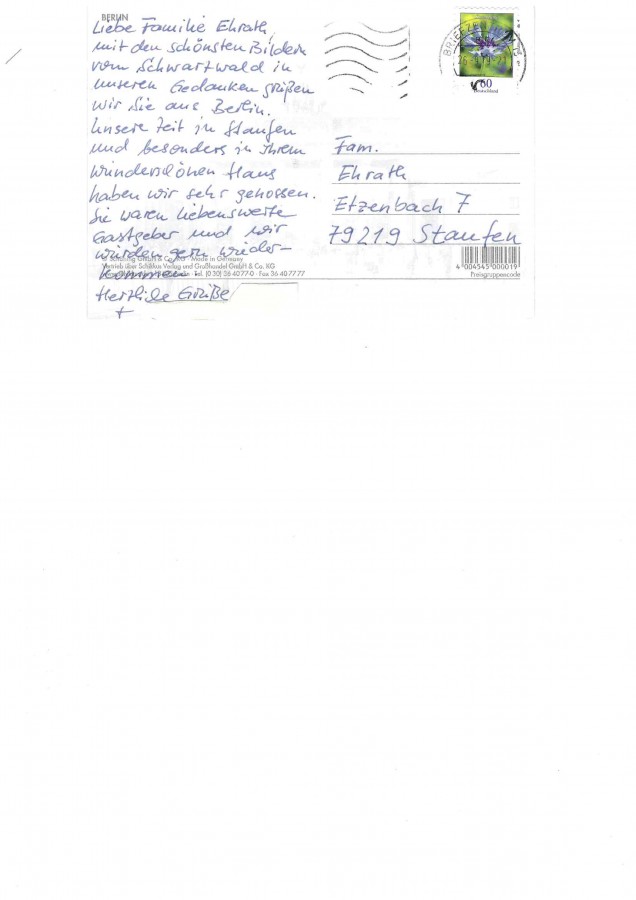 BERLIN
Liebe Familie Ehrath,
mit den schönsten Bildern
vom Schwartwald in
unseren Gedanken grüßen
wir Sie aus Berlin.
Unsere Zeit in Staufen
und besonders in Ihrem
wunderschönen Haus
haben wir sehr genossen.
Sie waren liebenswerte
Gastgeber und wir
würden gern wieder-
kommen
Herzliche Grüße
+
GmbH & Co. KG · Made in Germany
Vertrieb über Schikkus Verlag und Großhandel GmbH & Co. KG
Tel. (0 30) 36 40 77-0 · Fax 36 40 77 77
60
Deutschland
Fam.
Ehrath
Etzenbach 7
79219 Staufen
4 004545 000019
Preisgruppencode